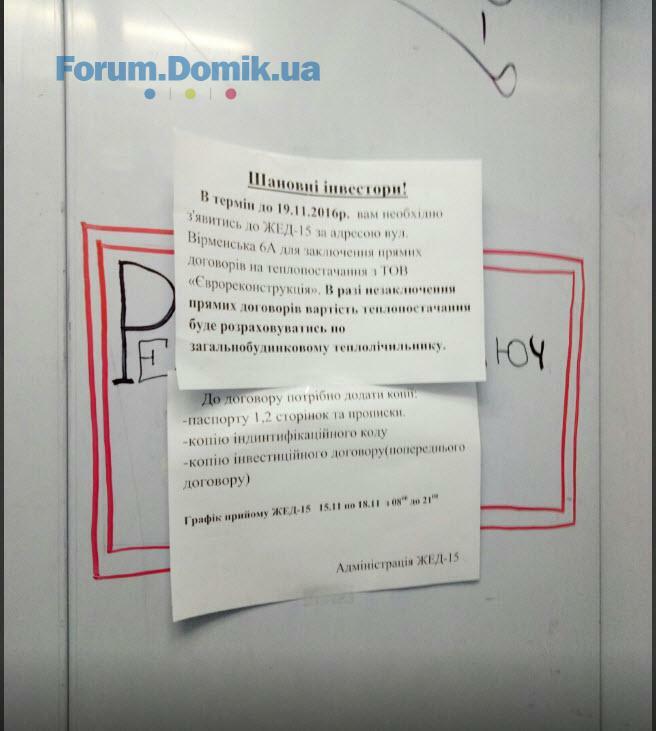 Forum.Domik.ua
Шановні інвестори!
В термін до 19.11.2016р. вам необхідно
з'явитись до ЖЕД-15 за адресою вул.
Вірменська 6А для заключення прямих
договорів на теплопостачання з ТОВ
«Єврореконструкція». В разі незаключення
прямих договорів вартість теплопостачання
буде розраховуватись по
загальнобудинковому теплолічильнику.
РЕ ЮЧ
До договору потрібно додати копії:
-паспорту 1,2 сторінок та прописки.
-копію індинтифікаційного коду
-копію інвестиційного договору(попереднього
договору)
Графік прийому ЖЕД-15 15.11 по 18.11 з 08⁰⁰ до 21⁰⁰
Адміністрація ЖЕД-15